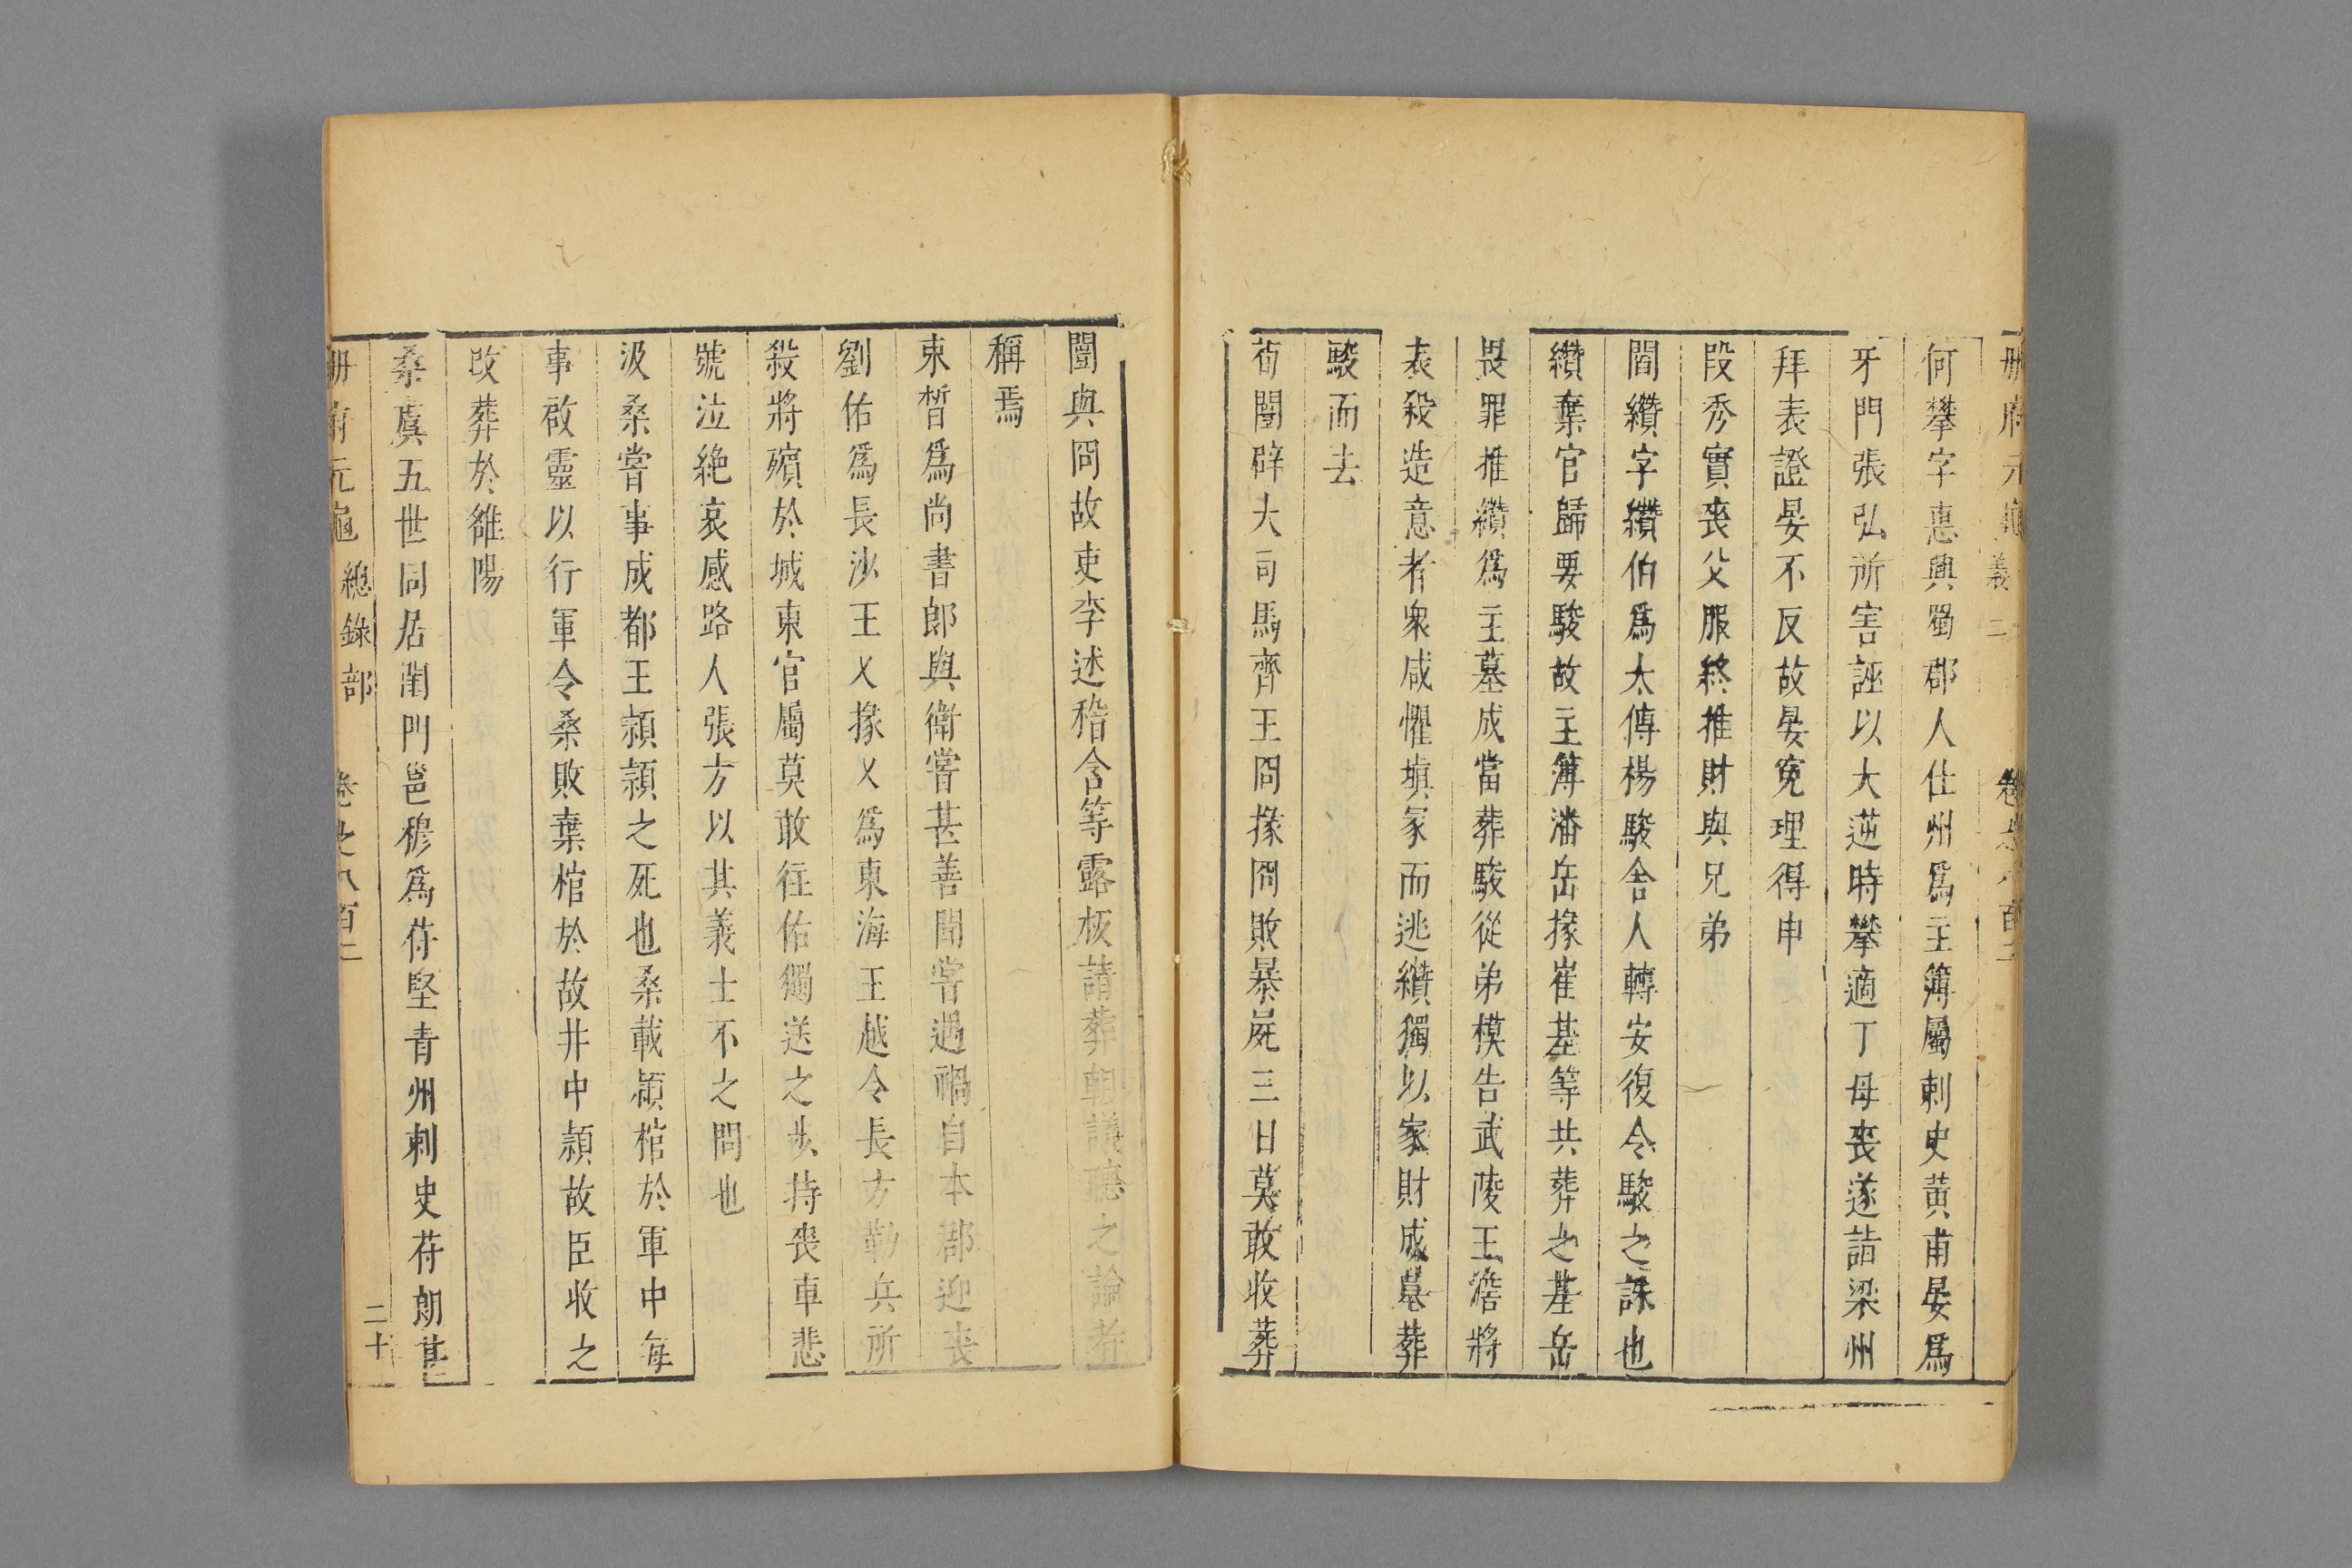 冊府元龜 義二 卷之八百二
何攀字惠興蜀郡人仕州爲主簿屬刺史黃甫晏爲
牙門張弘所害誣以大逆時攀適丁母喪遂詣梁州
拜表證晏不反故晏寃理得申
段秀實喪父服終推財與兄弟
閻纘字纘伯爲太傅楊駿舍人轉安復令駿之誅也
纘棄官歸要駿故主簿潘岳掾崔基等共葬之基岳
畏罪推纘爲主墓成當葬駿從弟模告武陵王澹將
表殺造意者衆咸懼塡冢而逃纘獨以家財成墓葬
駿而去
荀闓辟大司馬齊王冏掾冏敗暴屍三日莫敢收葬
闓與冏故吏李述嵇含等露板請葬朝議聽之論者
稱焉
束晳爲尚書郎與衛嘗甚善聞嘗遇禍自本郡迎喪
劉佑爲長沙王乂掾乂爲東海王越令長方勒兵所
殺將殯於城東官屬莫敢往佑獨送之步持喪車悲
號泣絶哀感路人張方以其義士不之問也
汲桑嘗事成都王頴頴之死也桑載頴棺於軍中每
事啟靈以行軍令桑敗棄棺於故井中頴故臣收之
改葬於雒陽
桑虞五世同居閨門邕穆爲苻堅青州刺史苻朗甚
冊府元龜 總錄部 卷之八百二 二十